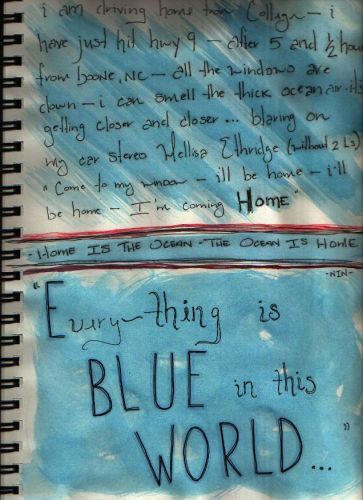 i am driving home from College – i
have just hit hwy 9 – after 5 and ½ hour
from Boone, NC – all the windows are
down – i can smell the thick ocean air – its
getting closer and closer... blaring on
my car stereo Mellisa Ethridge (without 2 Ls)
"Come to my window – i'll be home – i'll
be home – I'm coming Home"
- HOME IS THE OCEAN - THE OCEAN IS HOME
-NIN-
"Every-thing is
BLUE in this
WORLD..."